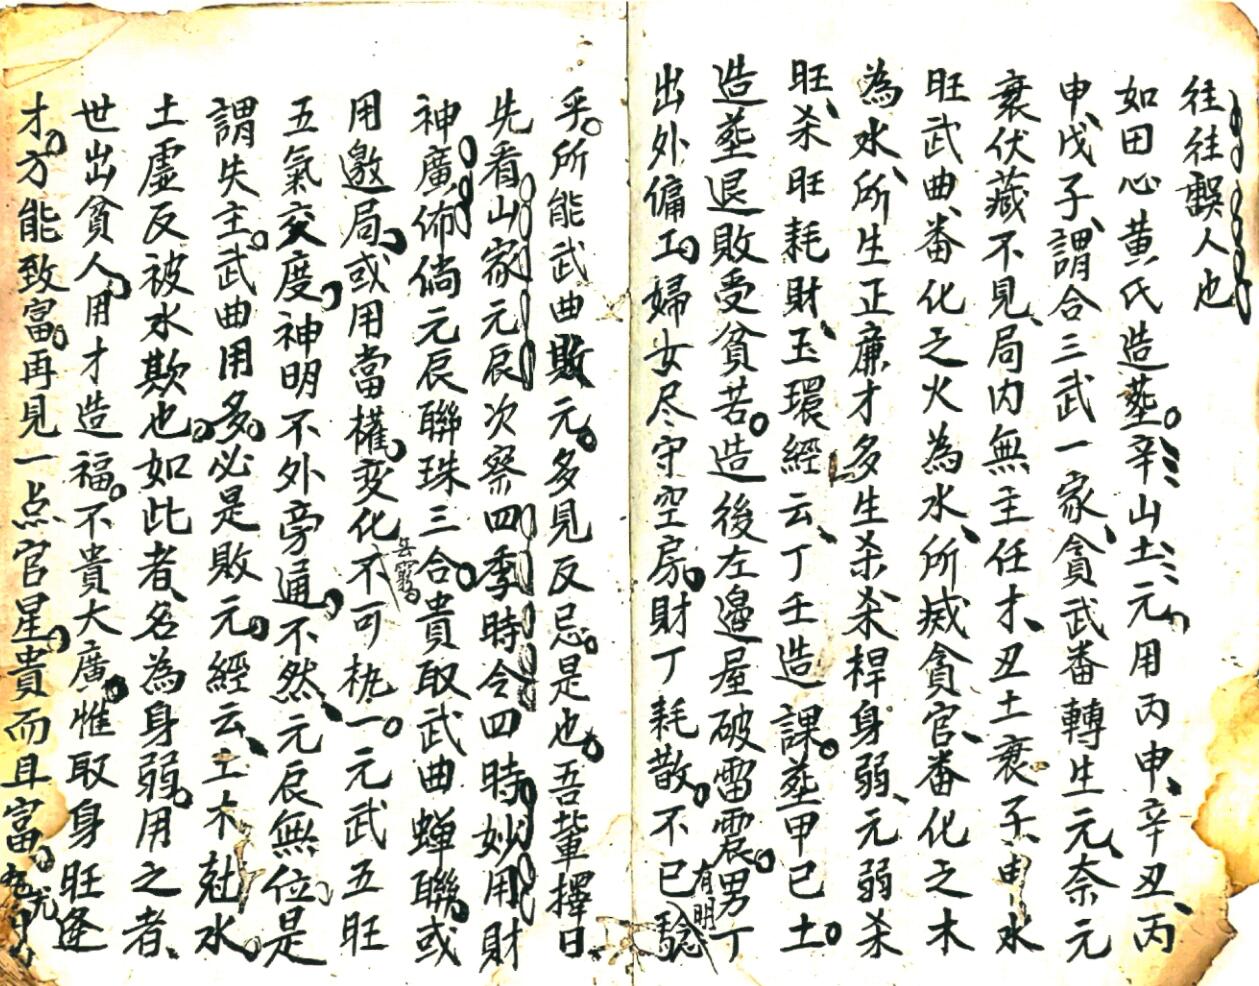 往往誤人也
如田心黄氏造塟。辛山土元、用丙申、辛丑、丙
申、戊子、謂合三武一家、貪武畨轉生元、奈元
衰伏藏不見、局内無主任才、丑土衰子、申水
旺武曲、畨化之火為水、所烕貪官、畨化之木
為水、所生正亷才多生杀、杀桿身弱、元弱杀
旺、杀旺耗財、玉環經云、丁壬造課。塟甲己土。
造塟退敗受貧苦。造後左邉屋破雷震。男丁
出外傭工。婦女尽守空房。財丁耗散。不已有明騐
乎。所能武曲敗元。多見反忌。是也。吾輩擇日、
先看山家元辰次察四季時令四時妙用財
神廣佈倘元辰聯珠三合。貴取武曲蟬聯。或
用邀局。或用當權。変化不可执一。元武五旺
五氣交度。神明不外旁通。不然、元辰無位。是
謂失主。武曲用多。必是敗元。經云、土木尅水。
土虛反被水欺也。如此者、名為身弱。用之者、
世出貧人。用才造福。不貴大廣。惟取身旺逢
才。方能致富。再見一点官星。貴而且富。